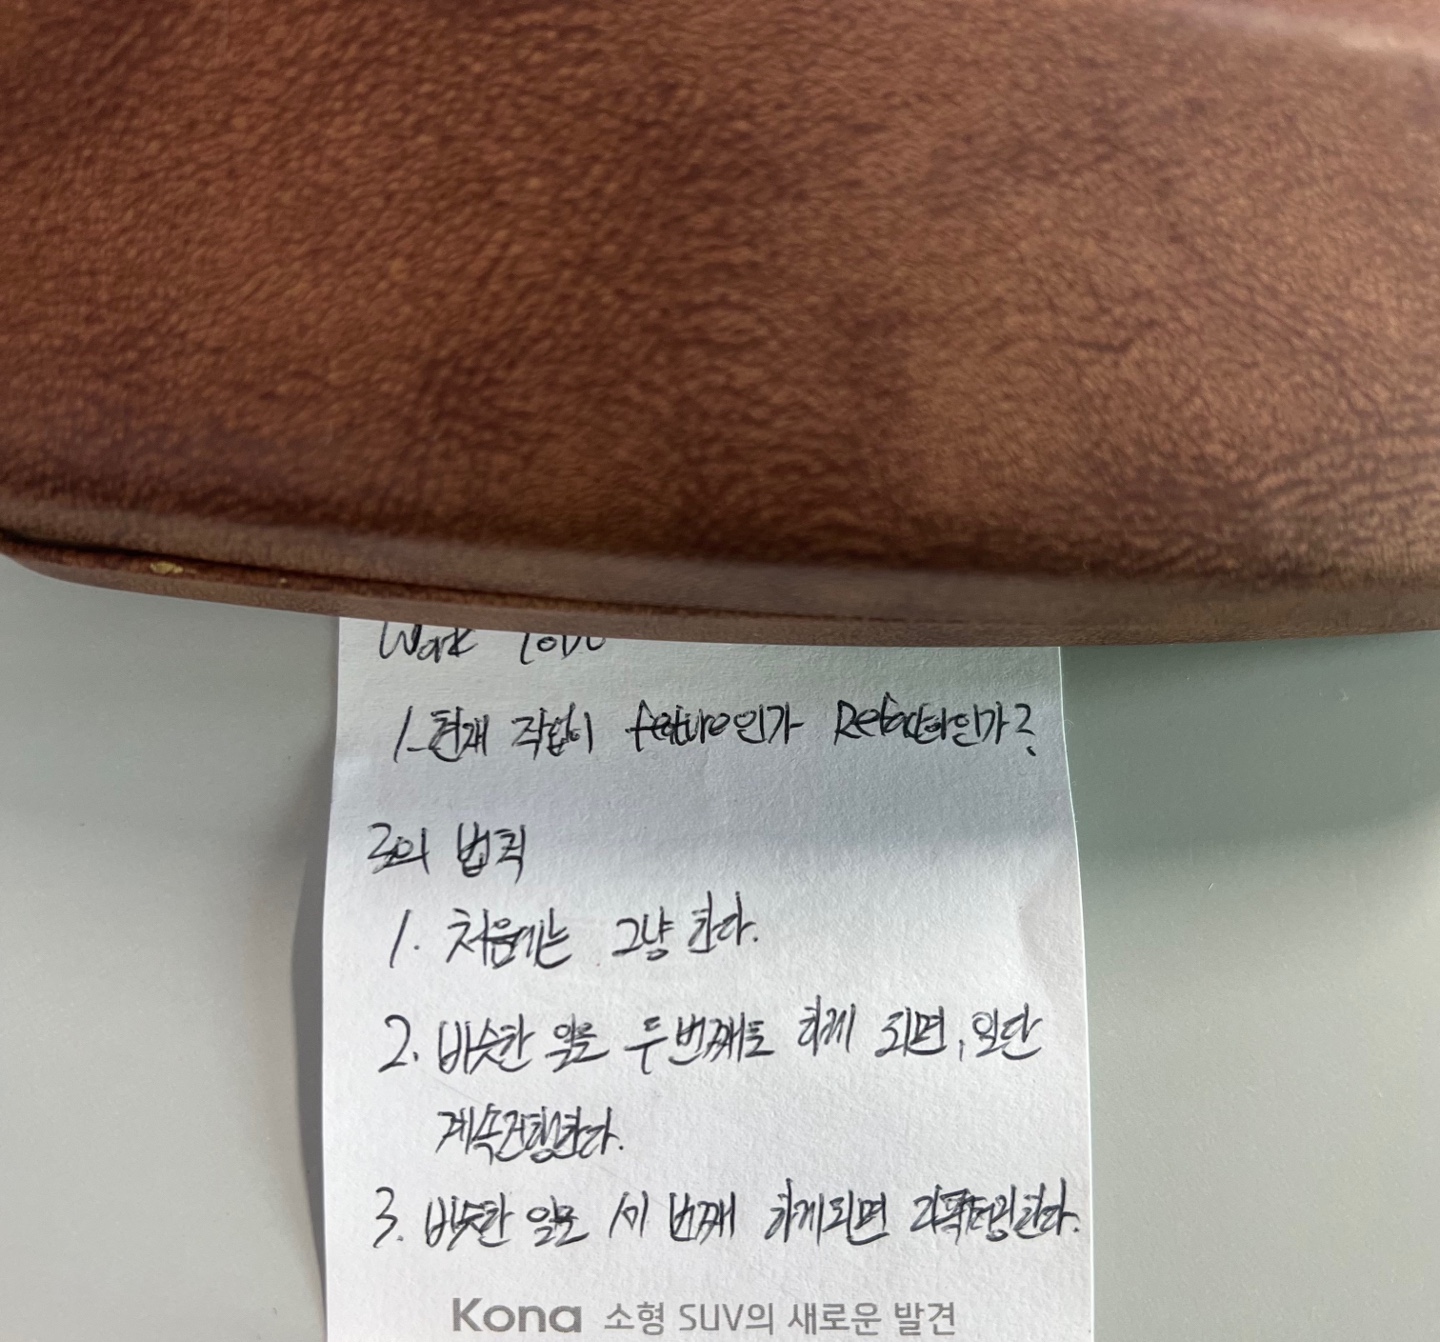 Work ToDo
1. 현재 작업이 feature인가 Refactor인가?
3의 법칙
1. 처음에는 그냥 한다.
2. 비슷한 일을 두번째로 하게 되면, 일단
계속진행한다.
3. 비슷한 일을 세 번째 하게되면 리팩터링한다.
Kona 소형 SUV의 새로운 발견